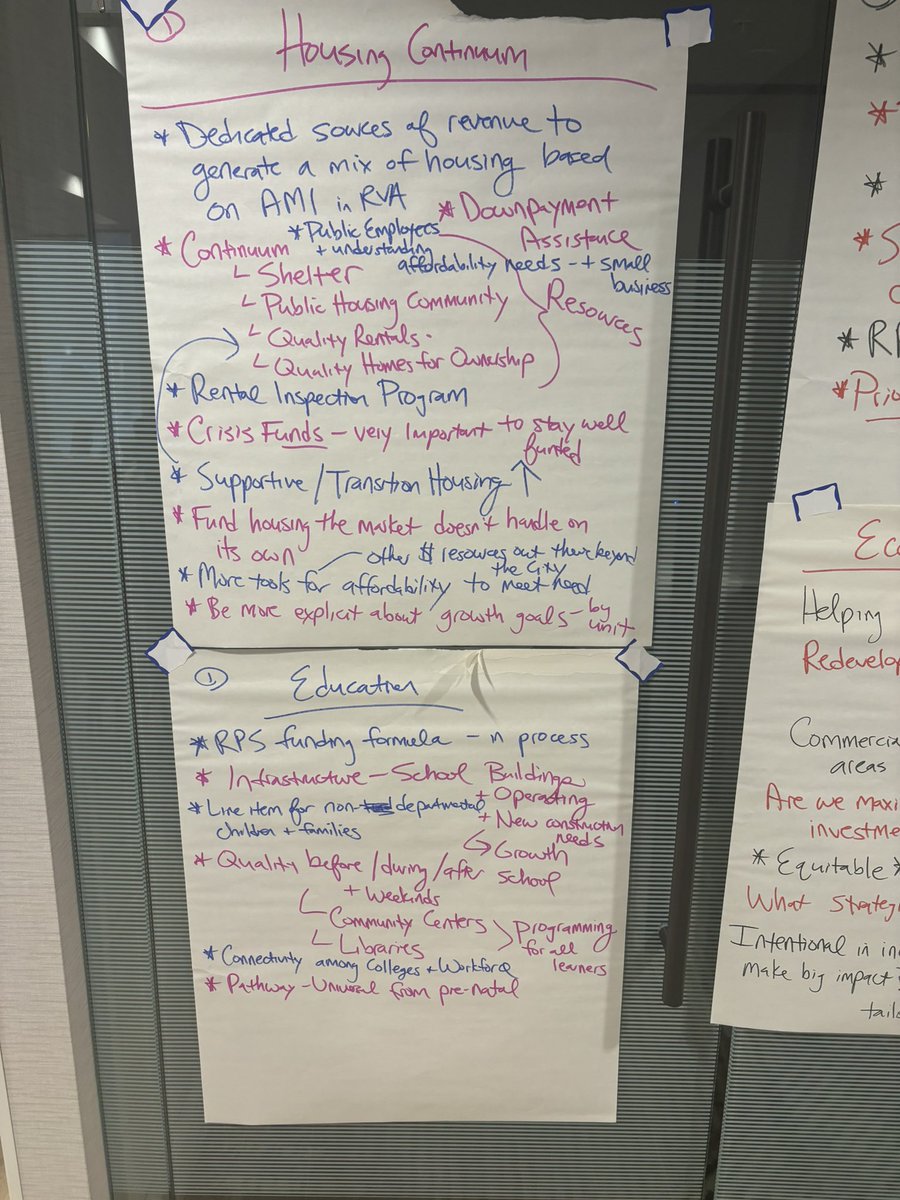 1
Housing Continuum
* Dedicated sources of revenue to
generate a mix of housing based
on AMI in RVA
* Downpayment
Assistance
* Public Employers
+ understanding
affordability needs - + small
business
* Continuum
Shelter
Public Housing Community
Quality Rentals
Quality Homes for Ownership
Resources
* Rental Inspection Program
* Crisis Funds - very important to stay well
funded
* Supportive / Transition Housing
* Fund housing the market doesn't handle on
its own
other $ resources out there beyond
the City
* More tools for affordability to meet need
* Be more explicit about growth goals - by
unit
1
Education
* RPS funding formula - in process
* Infrastructure - School Buildings
+ Operating
+ New construction
needs
Growth
* Line item for non- departmental
children + families
* Quality before / during / after school
+ Weekends
Community Centers
Libraries
programming
for all
learners
* Connectivity among Colleges + Workforce
* Pathway - Universal from pre-natal
*
*
*
*
* RP
*
Helping
Redevelop
Commercia
areas
Are we maxi
investme
* Equitable *
What Strateg
Intentional in in
make big impact
tail